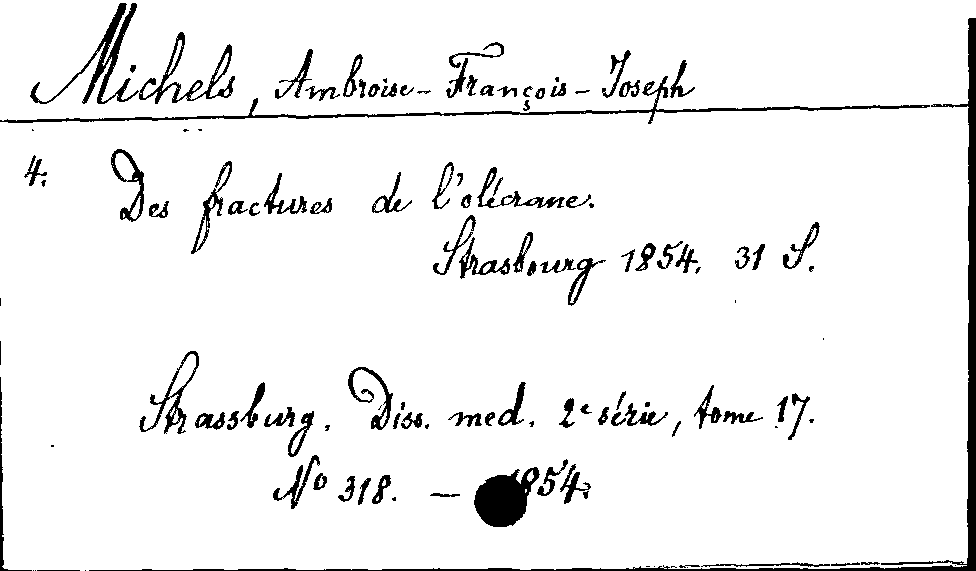 Michels, Ambroise-François-Joseph
4. Des fractures de l'olécrane.
Strasbourg 1854. 31 S.
Strassburg. Diss. med. 2e série, tome 17.
No 318. — 1854.